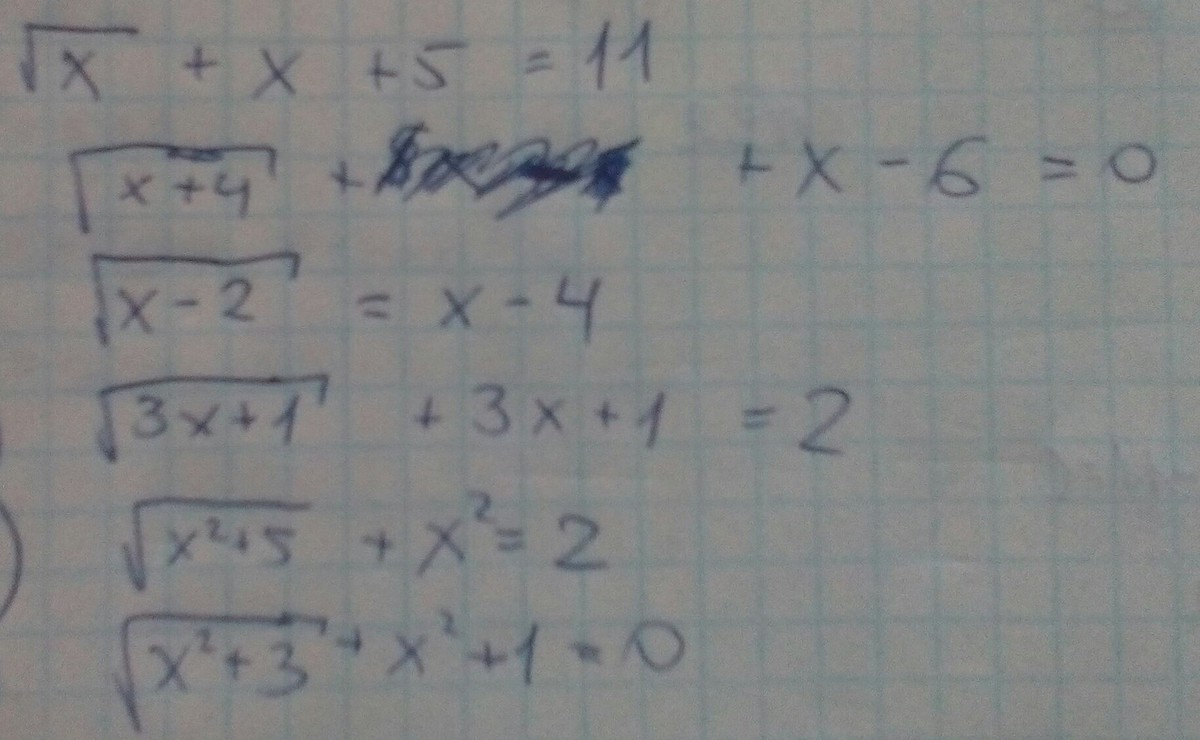 √x + x + 5 = 11
√(x + 4) + + x - 6 = 0
√(x - 2) = x - 4
√(3x + 1) + 3x + 1 = 2
√(x² + 5) + x² = 2
√(x² + 3) + x² + 1 = 0